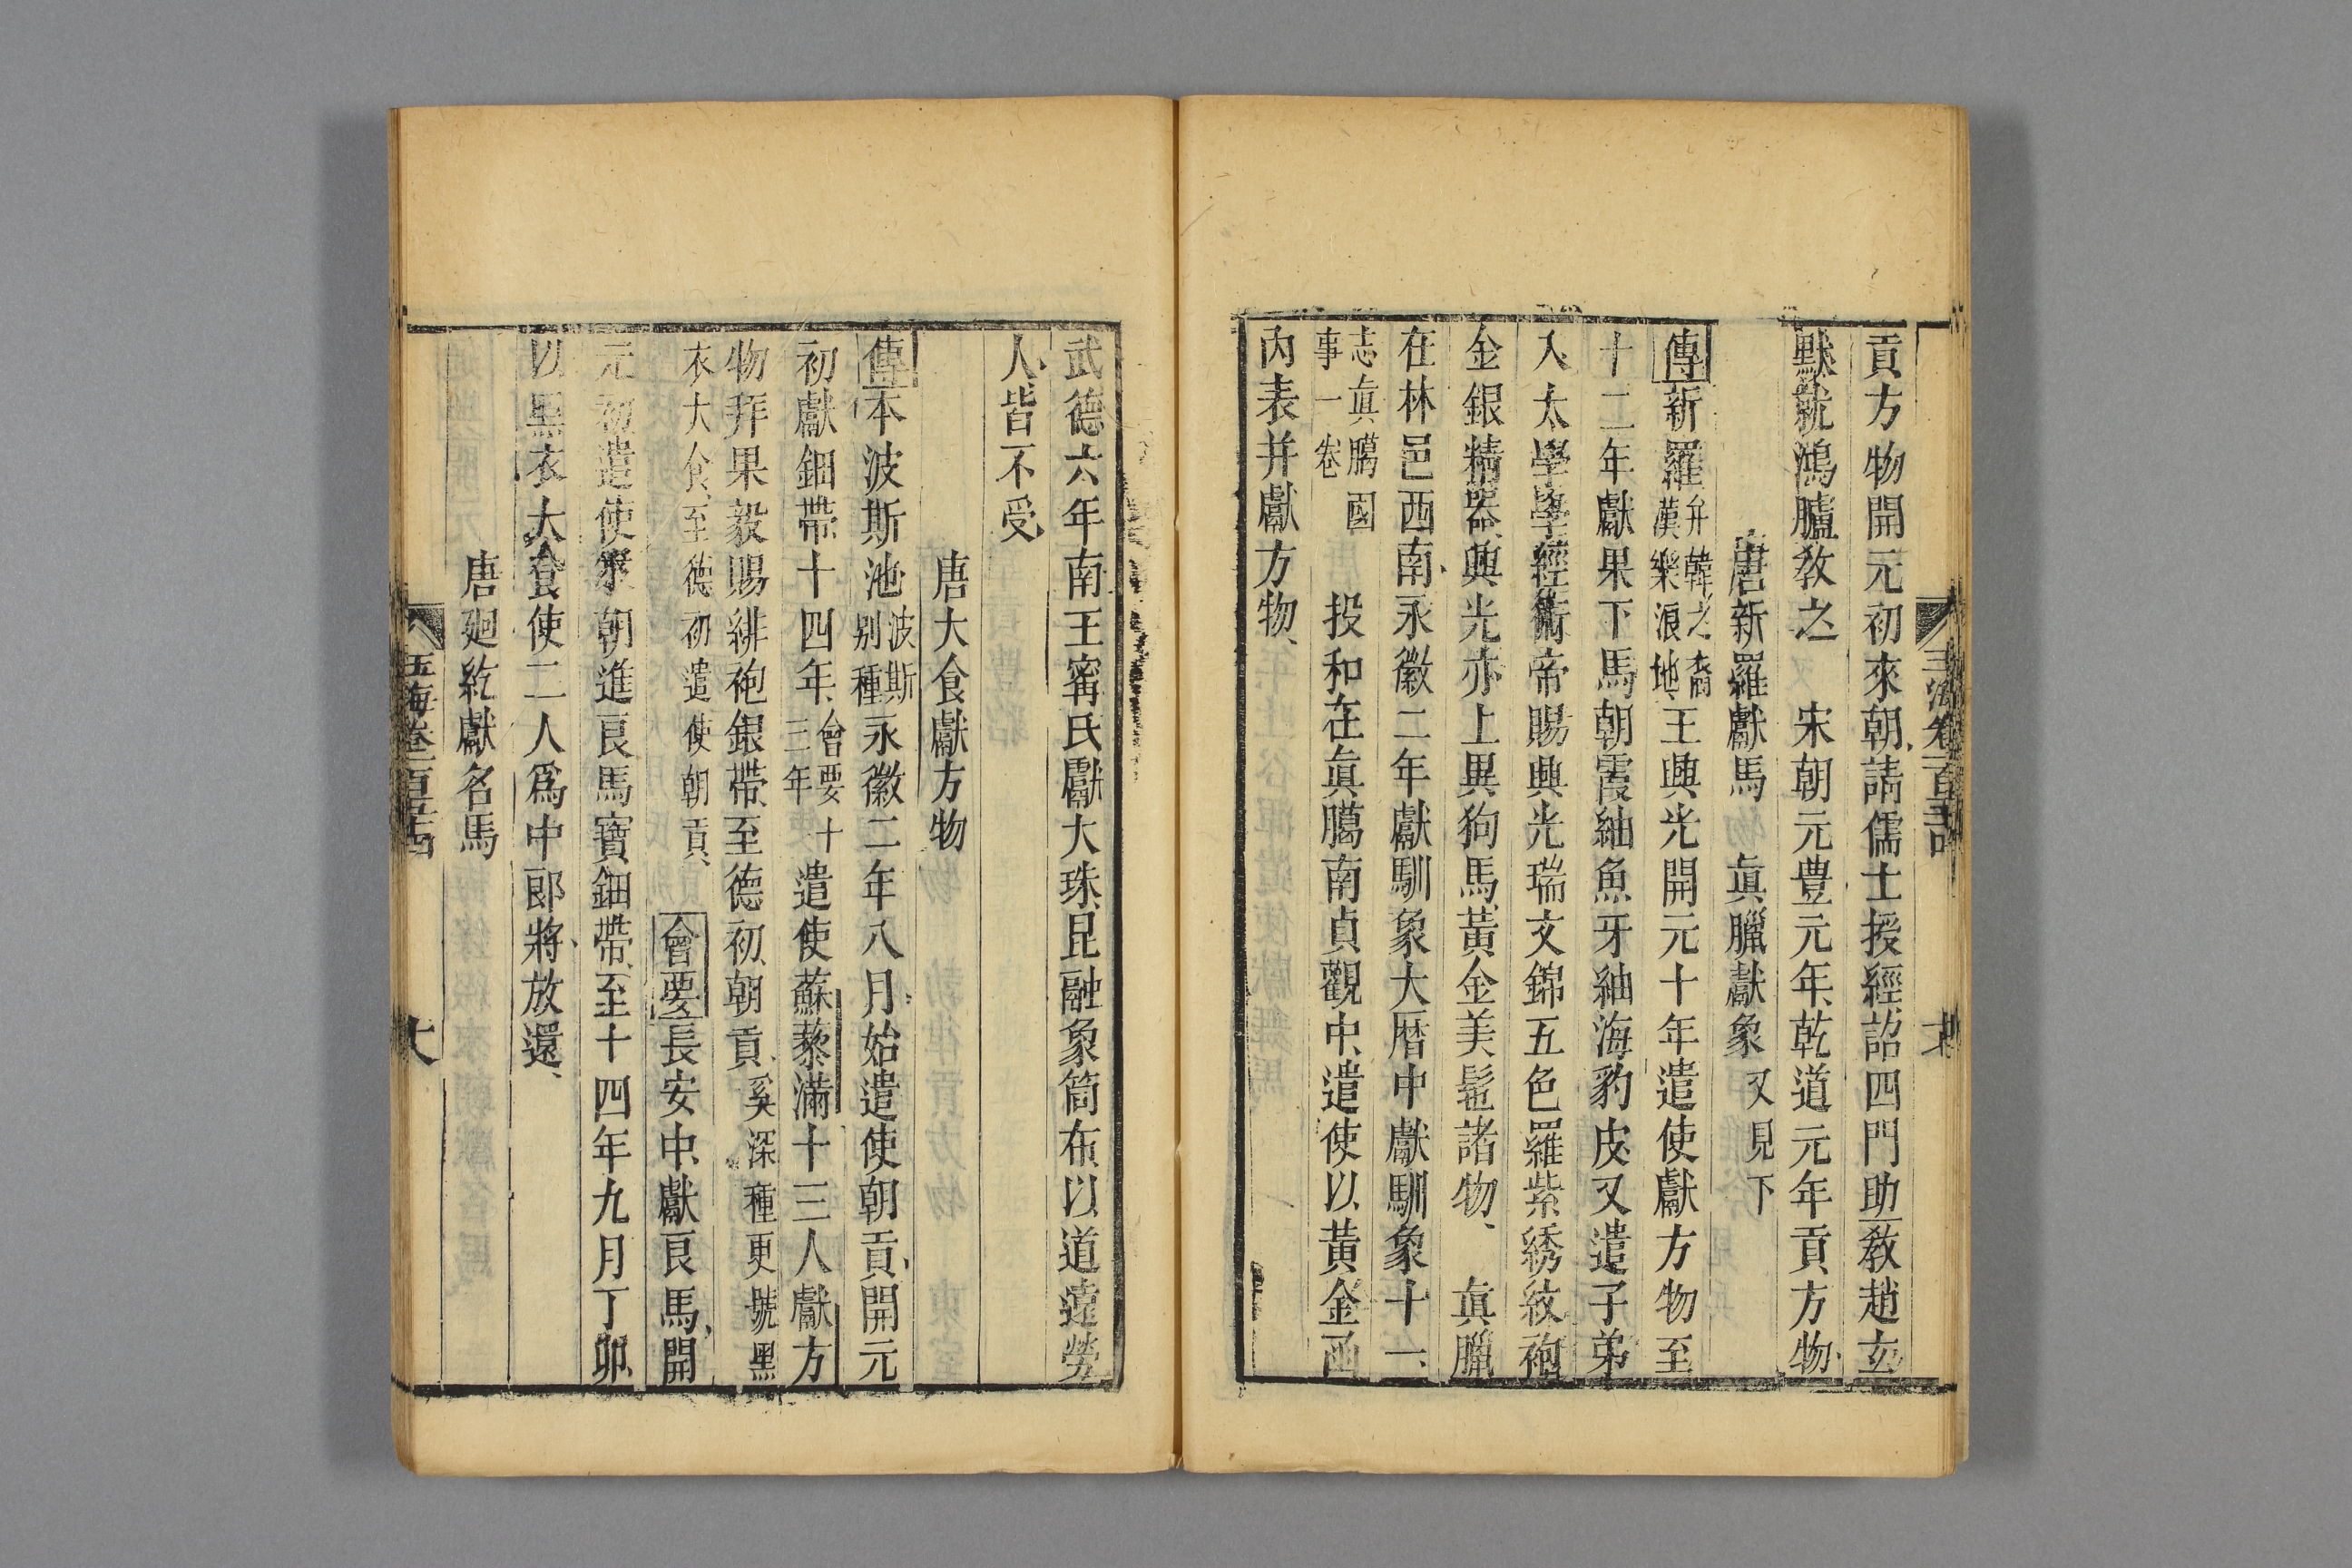 貢方物開元初來朝請儒士授經詔四門助敎趙玄
默就鴻臚敎之　宋朝元豊元年乾道元年貢方物
唐新羅獻馬　眞臘獻象又見下
傳新羅弁韓之裔漢樂浪地王興光開元十年遣使獻方物至
十二年獻果下馬朝霞紬魚牙紬海豹皮又遣子弟
入太學學經術帝賜興光瑞文錦五色羅紫綉紋袍
金銀精器興光亦上異狗馬黃金美髢諸物　眞臘
在林邑西南永徽二年獻馴象大曆中獻馴象十一
志眞臈國事一卷　投和在眞臈南貞觀中遣使以黃金函
內表并獻方物
武德六年南王甯氏獻大珠昆融象筒布以道遠勞
人皆不受
唐大食獻方物
傳本波斯池波斯別種永徽二年八月始遣使朝貢開元
初獻鈿帶十四年會要十三年遣使蘇藜滿十三人獻方
物拜果毅賜緋袍銀帶至德初朝貢奚深種更號黑
衣大食至德初遣使朝貢　會要長安中獻良馬開
元初遣使來朝進良馬寶鈿帶至十四年九月丁卯
以黑衣大食使二人爲中郎將放還
唐廻紇獻名馬
玉海卷一百五十四